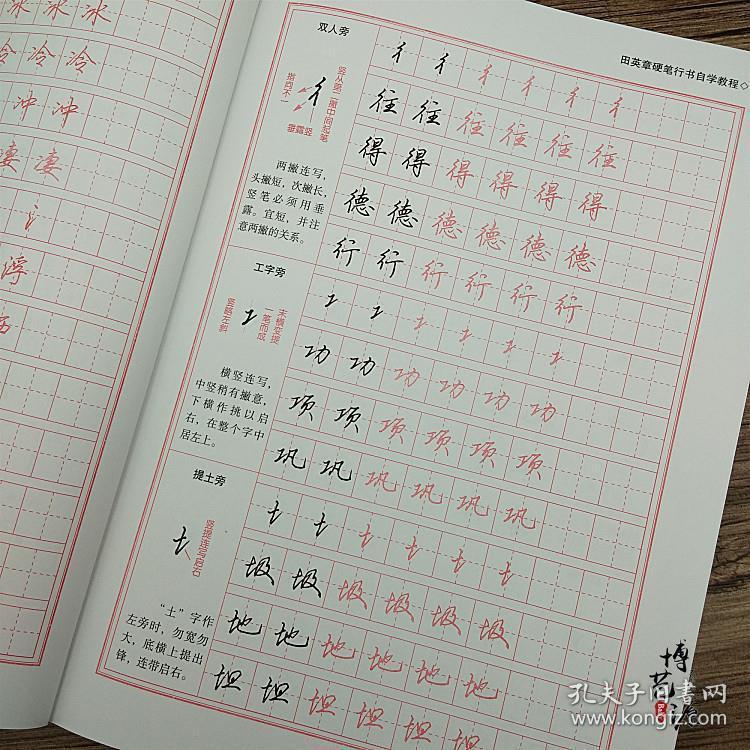 冰冰冰
冷冷冷
冲冲
凄凄
氵
浮
田英章硬笔行书自学教程◇
双人旁
彳彳彳彳彳彳
竖从第二撇中间起笔
彳
撇向不一
垂露竖
往往往往往往
得得得得得得
两撇连写,
头撇短,次撇长,
竖笔必须用垂
露。宜短,并注
意两撇的关系。
德德德德德德
行行行行行行
工字旁
末横变提
一笔而成
竖略左斜
功功功功功功
横竖连写,
中竖稍有撇意,
下横作挑以启
右,在整个字中
居左上。
项项项项项项
巩巩巩巩巩巩
提土旁
竖提连写启右
圾圾圾圾圾圾
“土”字作
左旁时,勿宽勿
大,底横上提出
锋,连带启右。
地地地地地地
坦坦坦坦坦坦
博艺
孔夫子旧书网
www.kongfz.com